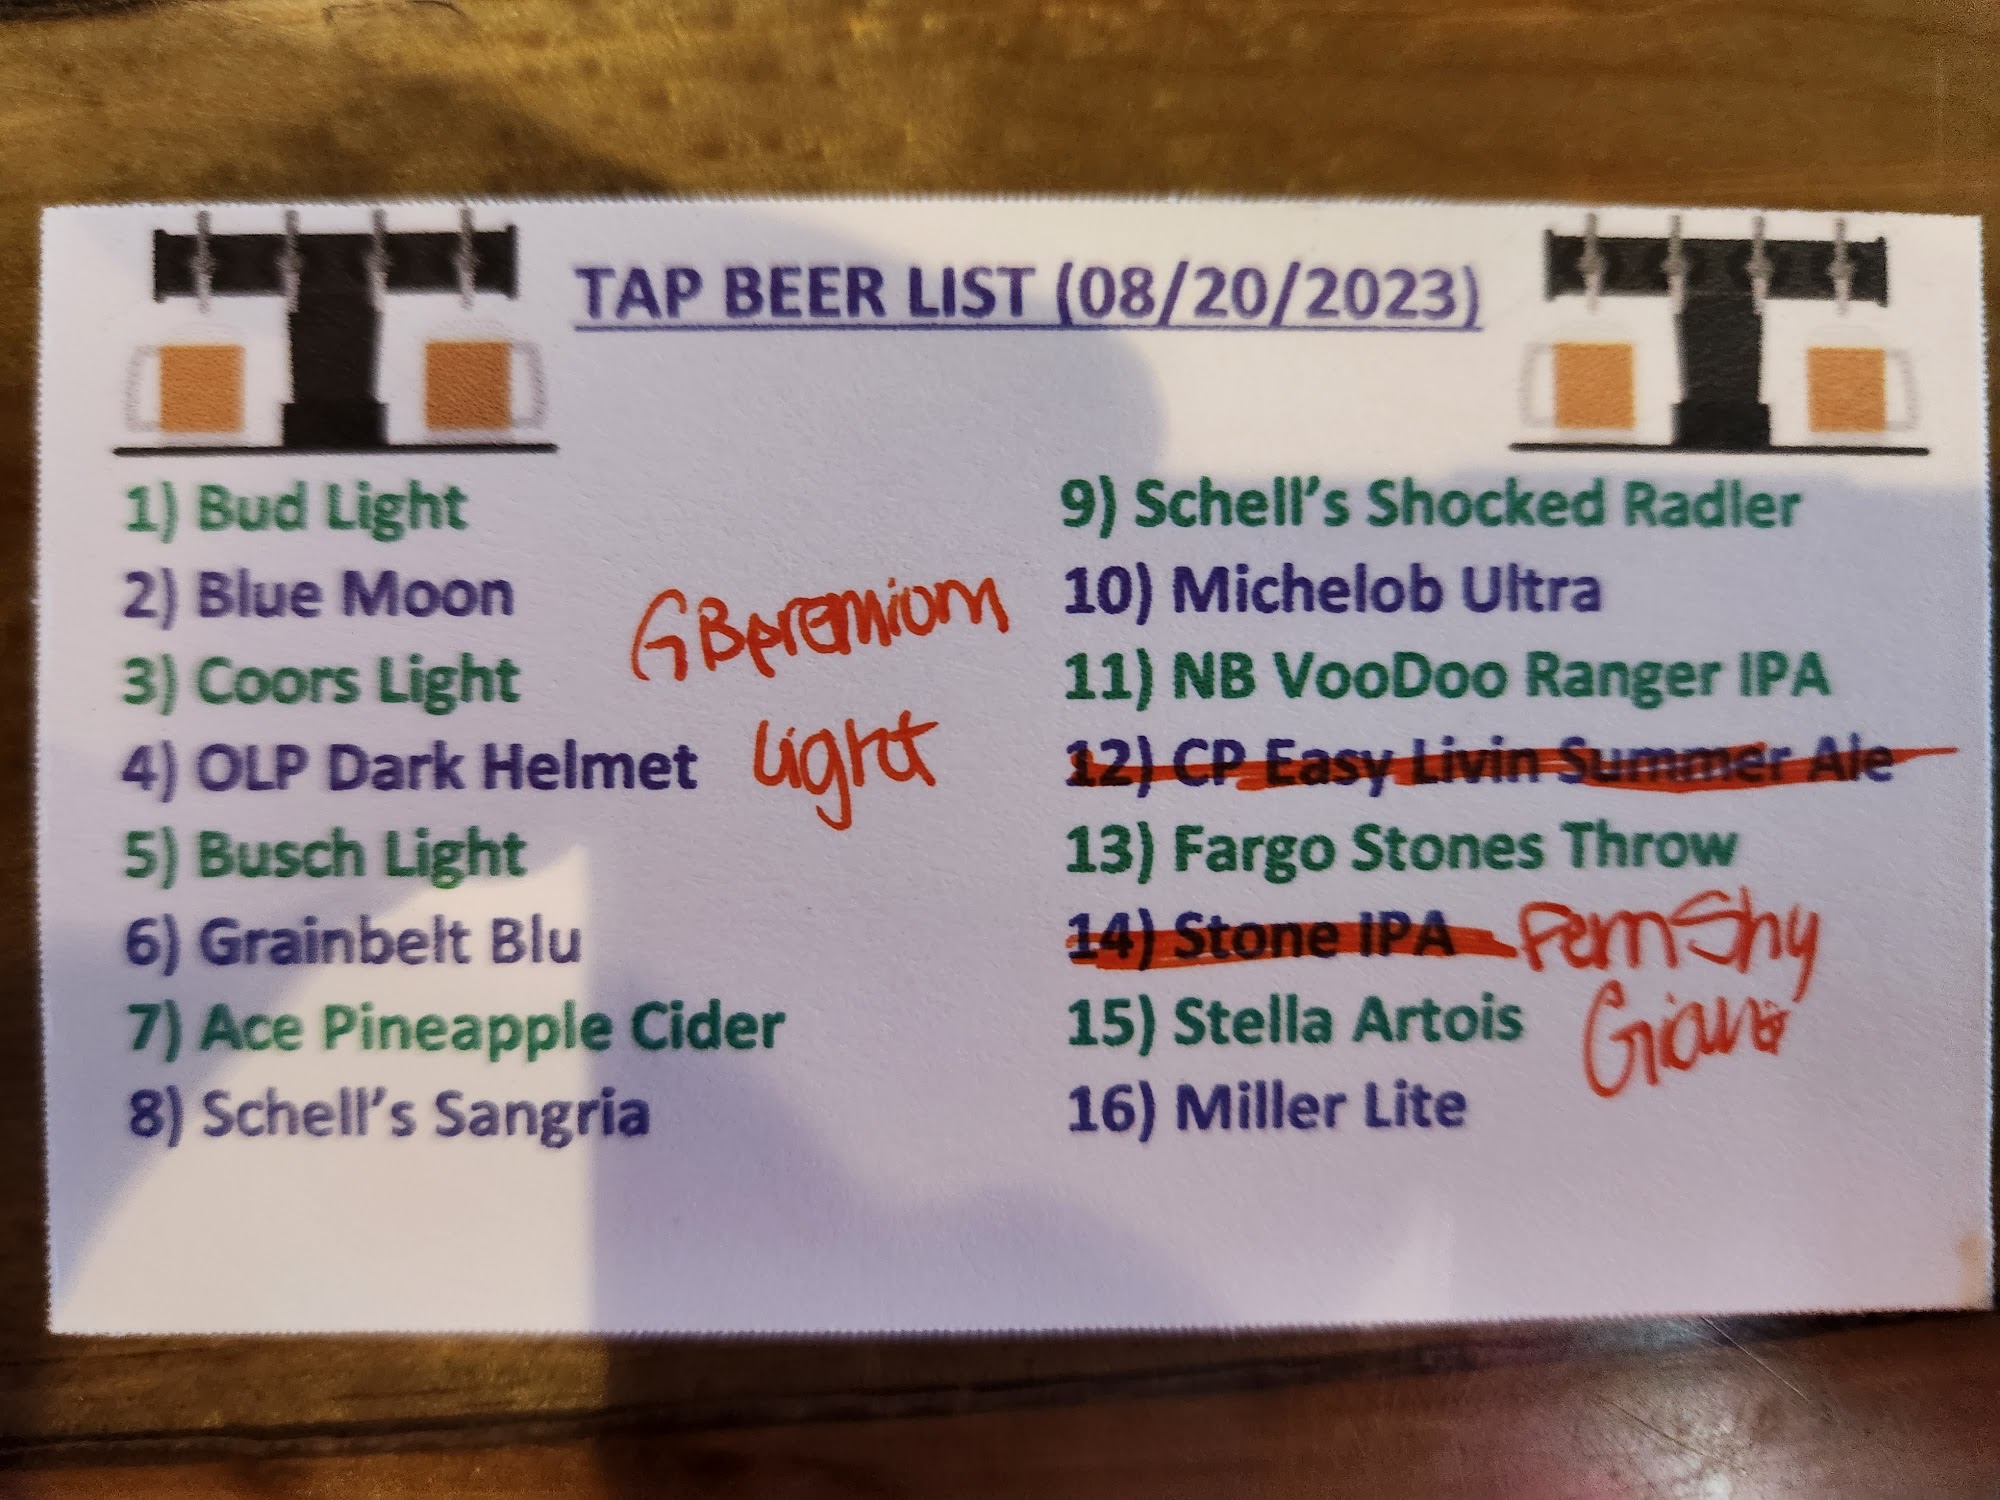 TAP BEER LIST (08/20/2023)
1) Bud Light
2) Blue Moon
3) Coors Light
4) OLP Dark Helmet
5) Busch Light
6) Grainbelt Blu
7) Ace Pineapple Cider
8) Schell's Sangria
GB peremiom
Light
9) Schell's Shocked Radler
10) Michelob Ultra
11) NB VooDoo Ranger IPA
12) CP Easy Livin Summer Ale
13) Fargo Stones Throw
14) Stone IPA
15) Stella Artois
16) Miller Lite